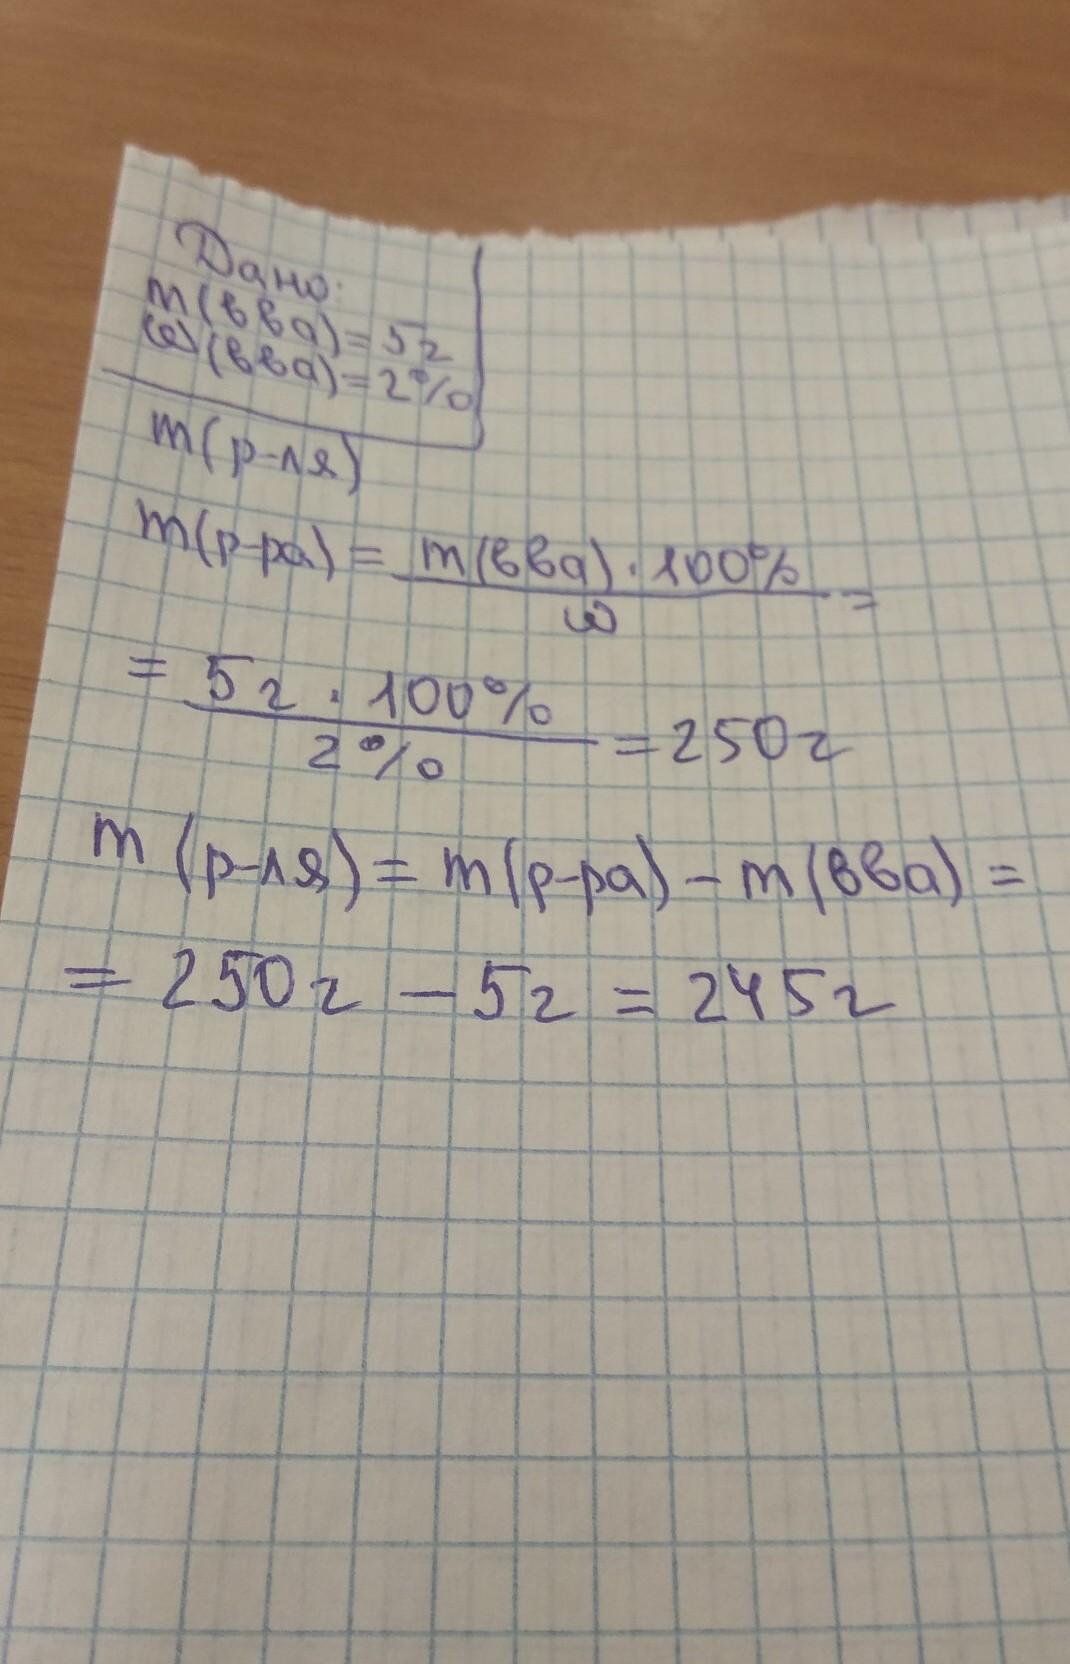 Дано:
m(вва)=5г
ω(вва)=2%
m(р-ля)
m(р-ра) = m(вва)·100% / ω =
= 5г · 100% / 2% = 250г
m (р-ля) = m(р-ра) - m(вва) =
= 250г - 5г = 245г